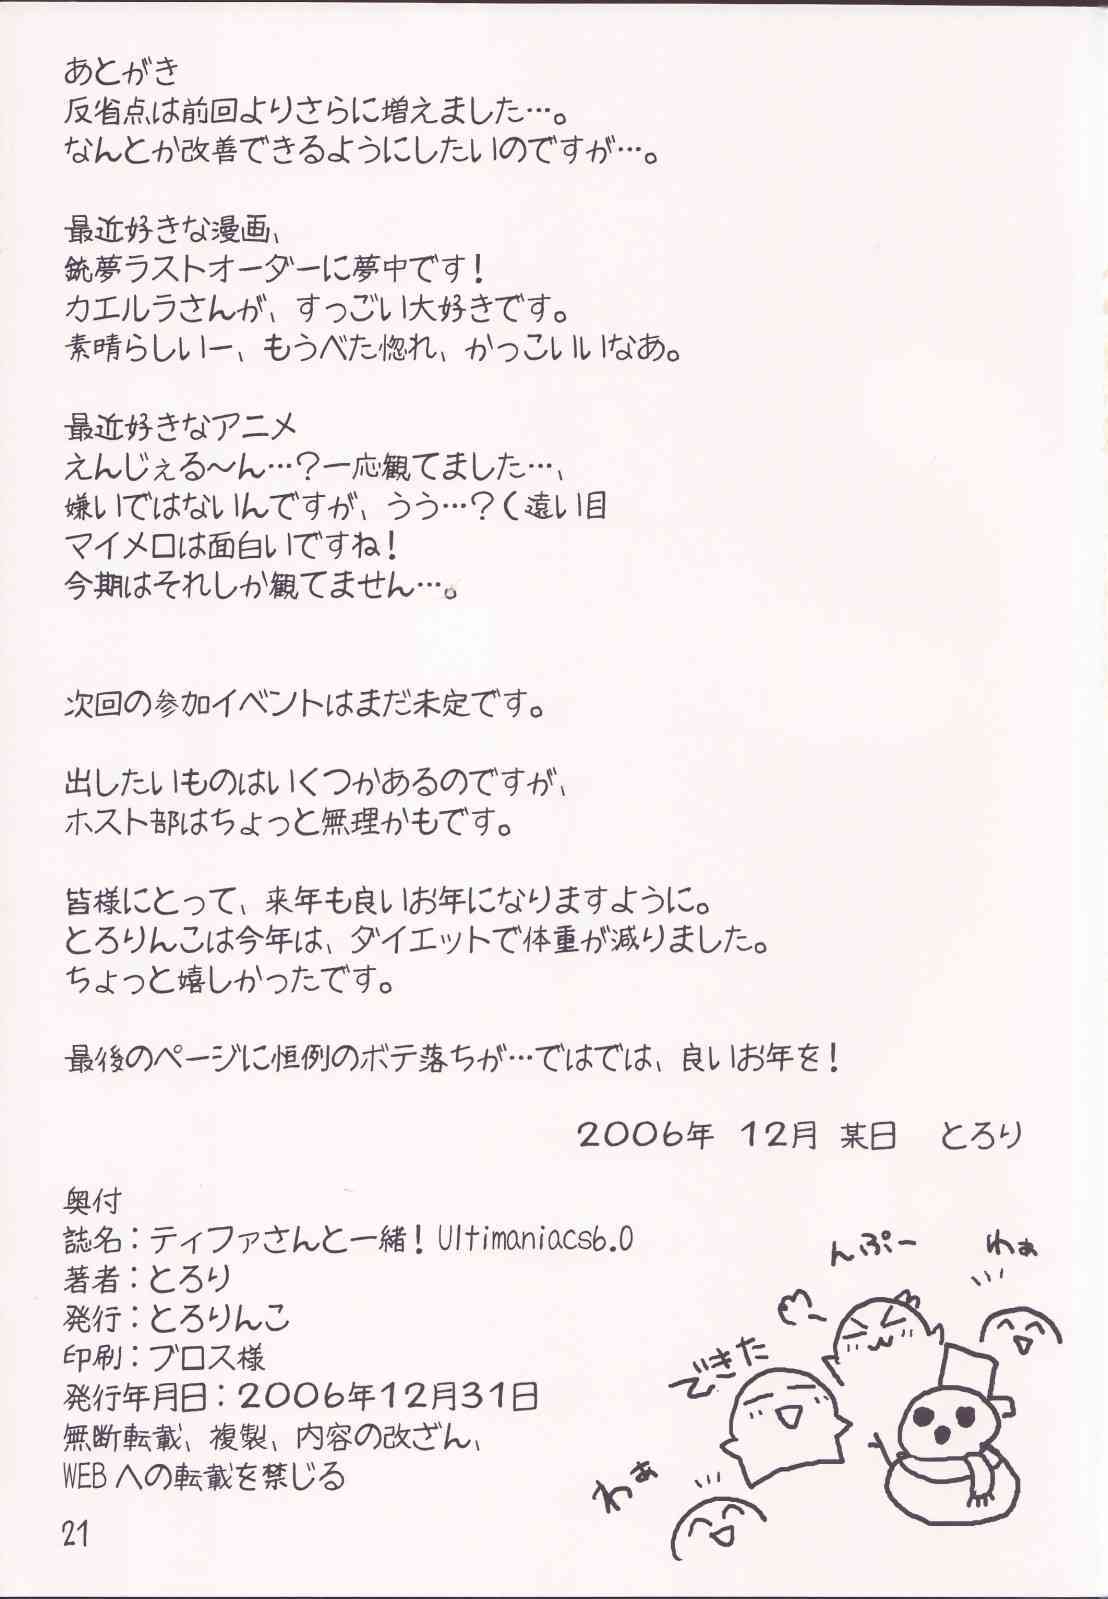 あとがき
反省点は前回よりさらに増えました…。
なんとか改善できるようにしたいのですが…。
最近好きな漫画、
銃夢ラストオーダーに夢中です!
カエルラさんが、すっごい大好きです。
素晴らしいー、もうべた惚れ、かっこいいなあ。
最近好きなアニメ
えんじぇる～ん…?一応観てました…、
嫌いではないんですが、うう…?(遠い目
マイメロは面白いですね!
今期はそれしか観てません…。
次回の参加イベントはまだ未定です。
出したいものはいくつかあるのですが、
ホスト部はちょっと無理かもです。
皆様にとって、来年も良いお年になりますように。
とろりんこは今年は、ダイエットで体重が減りました。
ちょっと嬉しかったです。
最後のページに恒例のボテ落ちが…ではでは、良いお年を!
2006年 12月 某日 とろり
奥付
誌名:ティファさんと一緒! Ultimaniacs6.0
著者:とろり
発行:とろりんこ
印刷:ブロス様
発行年月日:2006年12月31日
無断転載、複製、内容の改ざん、
WEBへの転載を禁じる
んぷー
わぁ
できた
わぁ
21